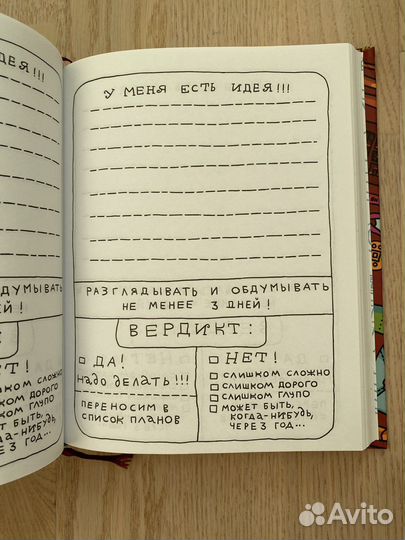 ДЕЯ!!!
ДУМЫВАТЬ
ЕЙ!
ЕТ!
СЛИШКОМ СЛОЖНО
СЛИШКОМ ДОРОГО
СЛИШКОМ ГЛУПО
ЖЕТ БЫТЬ,
КОГДА-НИБУДЬ,
ЧЕРЕЗ 3 ГОД...
У МЕНЯ ЕСТЬ ИДЕЯ!!!
РАЗГЛЯДЫВАТЬ И ОБДУМЫВАТЬ
НЕ МЕНЕЕ 3 ДНЕЙ!
ВЕРДИКТ:
ДА!
НАДО ДЕЛАТЬ!!!
ПЕРЕНОСИМ В
СПИСОК ПЛАНОВ
НЕТ!
СЛИШКОМ СЛОЖНО
СЛИШКОМ ДОРОГО
СЛИШКОМ ГЛУПО
МОЖЕТ БЫТЬ,
КОГДА-НИБУДЬ,
ЧЕРЕЗ 3 ГОД...
Avito